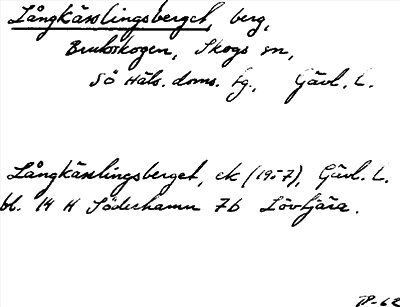 Långkässlingsberget, berg,
Bruksskogen, Skogs sn,
Sö Häls. doms. tg., Gävl. L.
Långkässlingsberget, ek (1957), Gävl. L.
bl. 14 H Söderhamn 7b Lövtjära.
TP-62